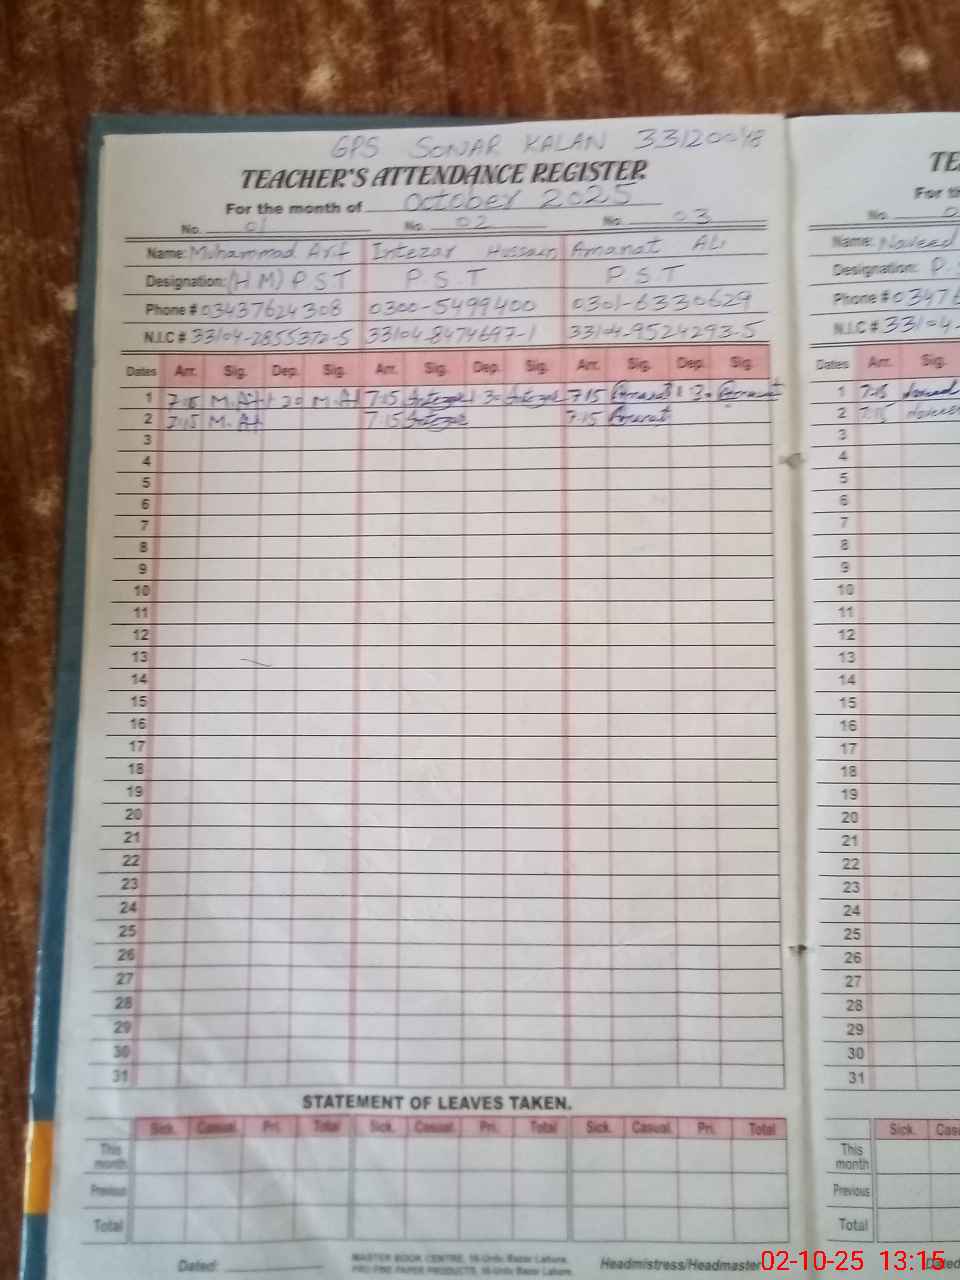 GPS SONAR KALAN 33120048
TEACHER'S ATTENDANCE REGISTER
For the month of October 2025
No. 01 No. 02 No. 03
Name: Muhammad Arif Intezar Hussain Amanat Ali
Designation: (H M) P S T P S T P S T
Phone # 03437624308 0300-5499400 0301-6330629
N.I.C # 33104-2855372-5 33104-8474697-1 33104-9524293-5
Dates Arr. Sig. Dep. Sig. Arr. Sig. Dep. Sig. Arr. Sig. Dep. Sig.
1 7:15 M. Arif 1 30 M. Arif 7:15 Intezar 1 30 Intezar 7:15 Amanat 1:30 Amanat
2 7:15 M. Arif 7:15 Intezar 7:15 Amanat
3
4
5
6
7
8
9
10
11
12
13
14
15
16
17
18
19
20
21
22
23
24
25
26
27
28
29
30
31
STATEMENT OF LEAVES TAKEN.
Sick. Casual. Pri. Total Sick. Casual. Pri. Total Sick. Casual. Pri. Total
This month
Previous
Total
Dated:
MASTER BOOK CENTRE, 16-Urdu Bazar Lahore.
PRO FINE PAPER PRODUCTS, 16-Urdu Bazar Lahore.
Headmistress/Headmaster
TE
For th
No.
Name: Naveed
Designation: P.
Phone # 03476
N.I.C # 33104-
Dates Arr. Sig.
1 7:15 Naveed
2 7:15
3
4
5
6
7
8
9
10
11
12
13
14
15
16
17
18
19
20
21
22
23
24
25
26
27
28
29
30
31
Sick. Cas
This month
Previous
Total
Dated
02-10-25 13:15